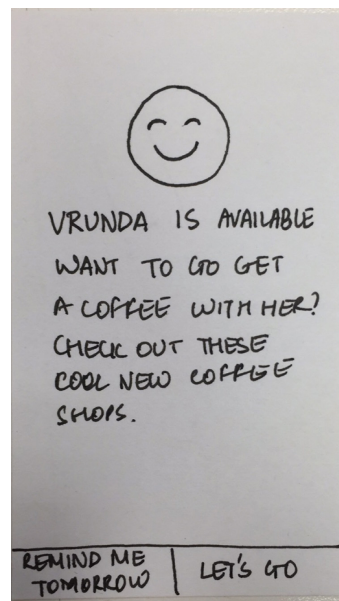 VRUNDA IS AVAILABLE
WANT TO GO GET
A COFFEE WITH HER?
CHECK OUT THESE
COOL NEW COFFEE
SHOPS.
REMIND ME
TOMORROW
LET'S GO